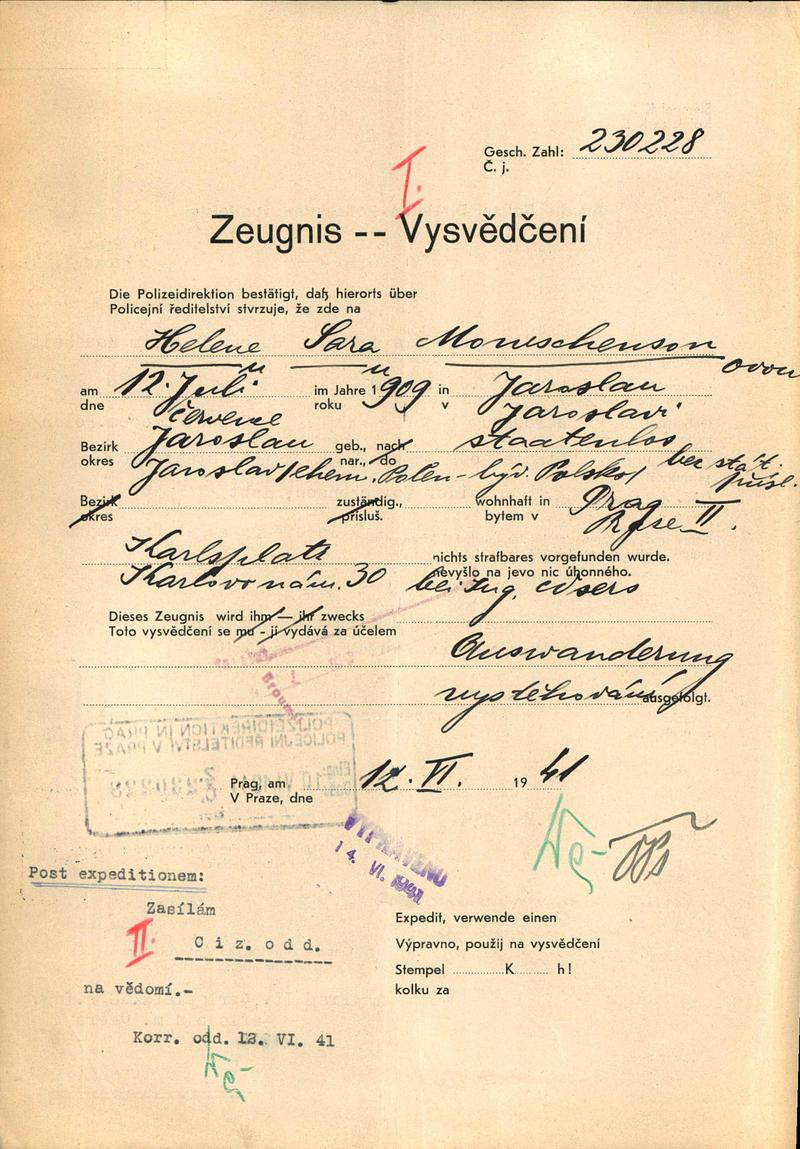 Gesch. Zahl: 230228
Č. j.
I.
Zeugnis -- Vysvědčení
Die Polizeidirektion bestätigt, daß hierorts über
Policejní ředitelství stvrzuje, že zde na
Helene Sara Moneschenson
ovou
am 12. Juli im Jahre 1909 in Jaroslau
dne července roku v Jaroslavi
Bezirk Jaroslau geb., nach staatenlos
okres Jaroslav/ehem. nar., do Polen - býv. Polsko/ bez stát. přísl.
Bezirk zuständig., wohnhaft in Prag II
okres přísluš. bytem v Praze II.
Karlsplatz nichts strafbares vorgefunden wurde.
Karlovo nám. 30 nevyšlo na jevo nic úhonného.
bei Ing.
Dieses Zeugnis wird ihm — ihr zwecks
Toto vysvědčení se mu - jí vydává za účelem
Auswanderung
vystěhování ausgefolgt.
POLIZEIDIREKTION IN PRAG
POLICEJNÍ ŘEDITELSTVÍ V PRAZE
230228
Prag, am 12. VI. 19 41
V Praze, dne
VYPRAVENO
14. VI. 1941
Post expeditionem:
Zasílám
II. Ciz. odd.
na vědomí.-
Korr. odd. 12. VI. 41
Expedit, verwende einen
Výpravno, použij na vysvědčení
Stempel K h!
kolku za